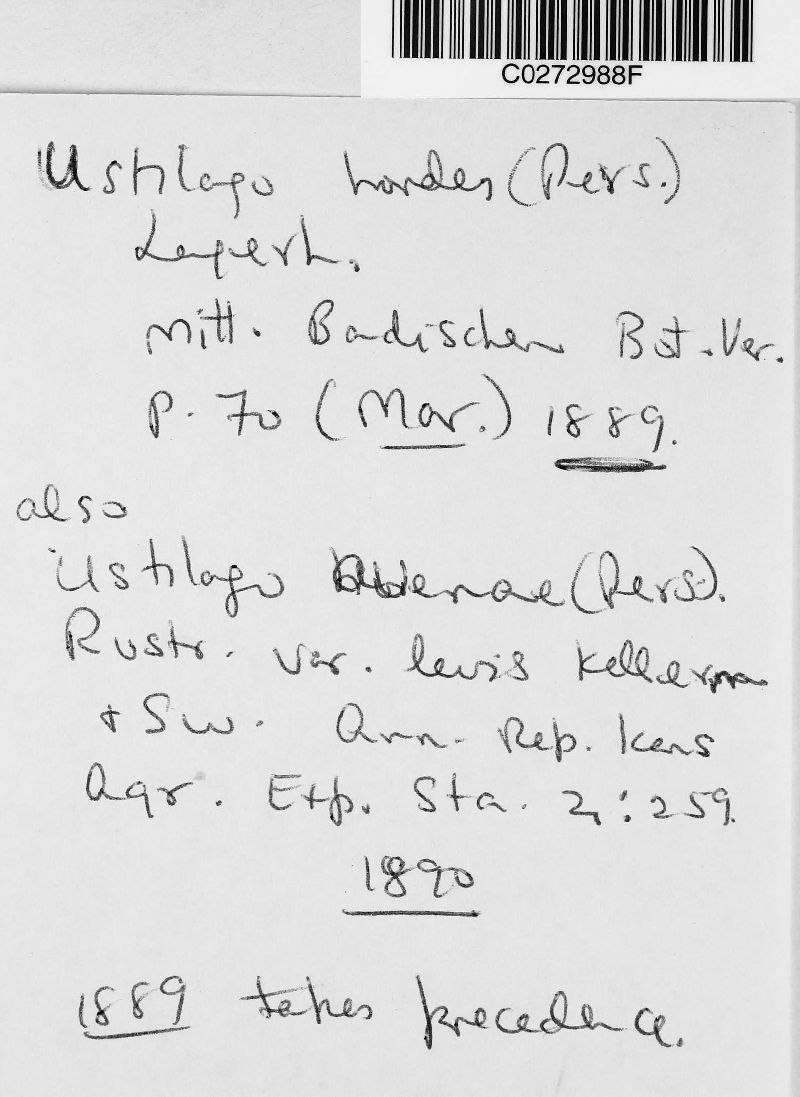 C0272988F
Ustilago hordei (Pers.)
Lagerh.
Mitt. Badischen Bot. Ver.
p. 70 (Mar.) 1889.
also
Ustilago avenae (Pers.).
Rustr. var. levis Kellerman
+ Sw. Ann. Rep. Kans
Agr. Exp. Sta. 2: 259.
1890
1889 takes precedence.